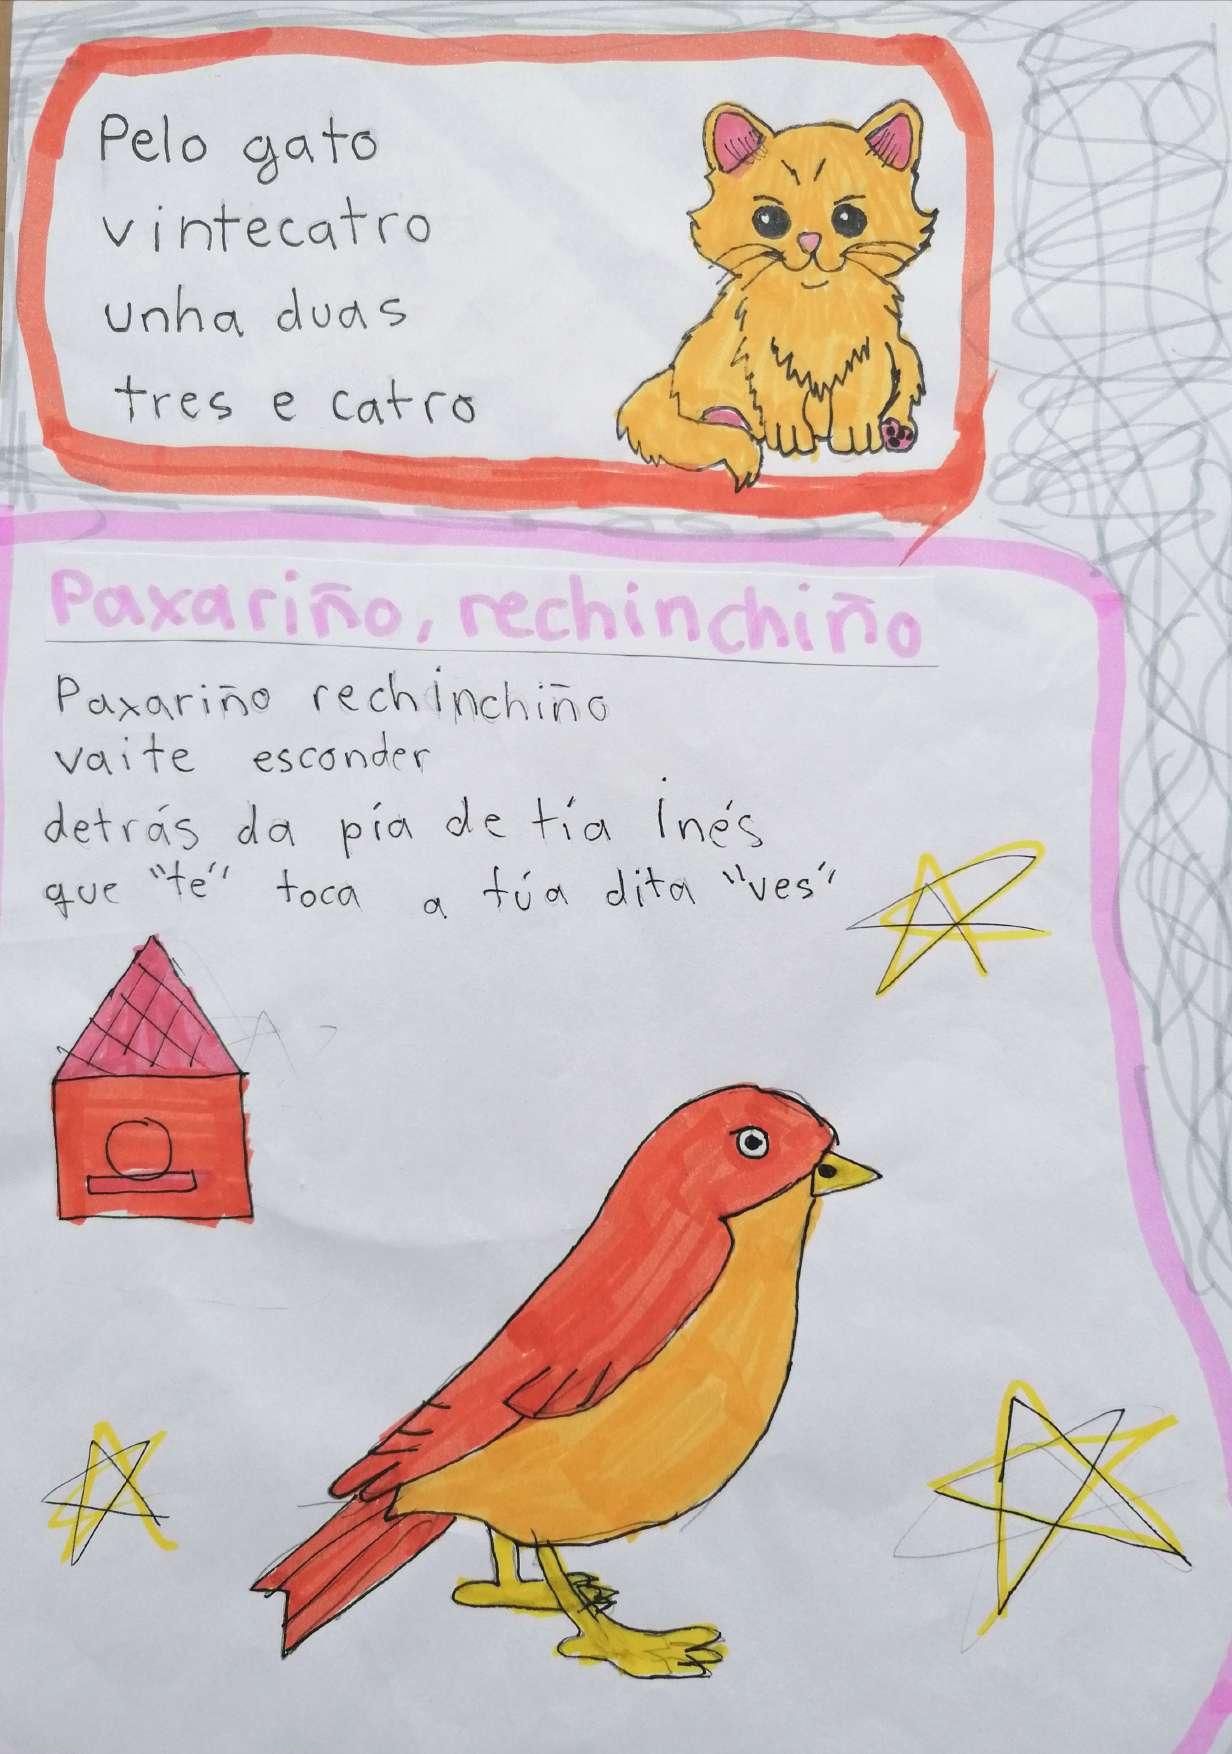 Pelo gato
vintecatro
unha duas
tres e catro
Paxariño, rechinchiño
Paxariño rechinchiño
vaite esconder
detrás da pía de tía Inés
que "te" toca a túa dita "ves"